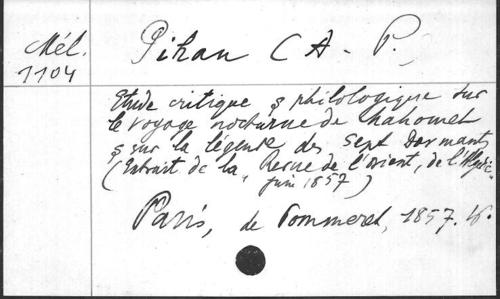 Mél.
1104
Pihan (A. P.
Etude critique & philologique sur
le voyage nocturne de Mahomet
& sur la légende des Sept Dormants
(Extrait de la "Revue de l'Orient, de l'Algérie"
juin 1857)
Paris, de Pommeret, 1857. 8°.